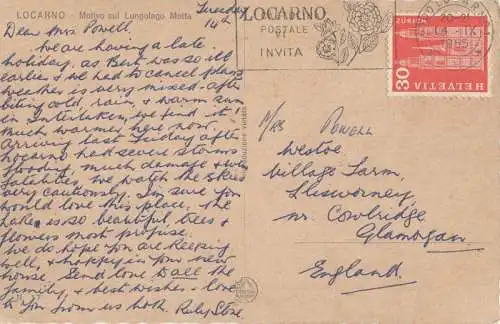 LOCARNO - Motivo sul Lungolago Motta
Tuesday
14th
Dear Mrs Powell.
We are having a late
holiday, as Bert was so ill
earlier & we had to cancel plans
weather is very mixed - after
biting cold, rain, & warm sun
in Interlaken, we find it
much warmer here now
Arriving last Friday after
Locarno had severe storms
flooding, much damage & two
fatalities. We watch the skies
very cautiously. I'm sure you
would love this place. The
Lake is so beautiful, trees &
flowers most profuse.
We do hope you are keeping
well, & happy in your new
house. Send love to all the
family, & best wishes - love
to you from us both. Ruby Stone.
LOCARNO
POSTALE
INVITA
ZÜRICH
30
HELVETIA
Mrs Powell
Westoe
Village Farm,
Llysworney
nr. Cowbridge
Glamorgan
England.